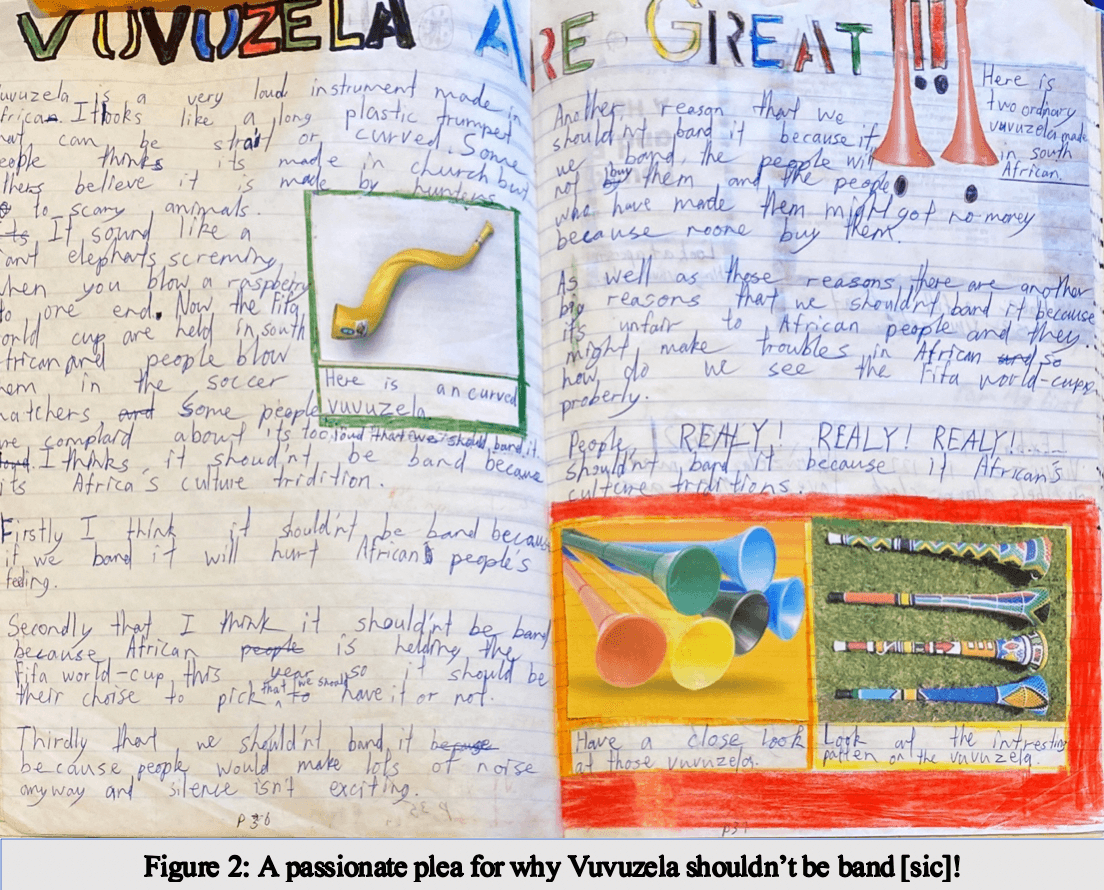 VUVUZELA ARE GREAT!!!
uvuzela is a very loud instrument made in
frican. It looks like a long plastic trumpet
hat can be strait or curved. Some
eople thinks its made in church but
thers believe it is made by hunters
to scary animals.
It sound like a
iant elephants screming
when you blow a raspberry
to one end. Now the Fifa
orld cup are held in south
frican and people blow
hem in the soccer
matchers and some people
re complard about its too loud that we should band it.
I thinks it shoud'nt be band because
its Africa's culture tridition.
Here is an curved
vuvuzela.
Firstly I think it shouldn't be band because
if we band it will hurt African's people's
feeling.
Secondly that I think it shouldn't be band
because African people is helding the
Fifa world-cup this year so it should be
their choise to pick that we should have it or not.
Thirdly that we shouldn't band it because
because people would make lots of noise
anyway and silence isn't exciting.
P 36
Here is
two ordinary
vuvuzela made
in south
African.
Another reason that we
shouldn't band it because if
we band, the people will
not buy them and the people
who have made them might got no money
because noone buy them.
As well as those reasons there are another
big reasons that we shouldn't band it because
it's unfair to African people and they
might make troubles in African and so
how do we see the Fifa world-cupp
properly.
People, REALY! REALY! REALY!......
shouldn't band it because it African's
culture triditions.
Have a close look
at those vuvuzelas.
Look at the intresting
patten on the vuvuzela.
P37
Figure 2: A passionate plea for why Vuvuzela shouldn't be band [sic]!